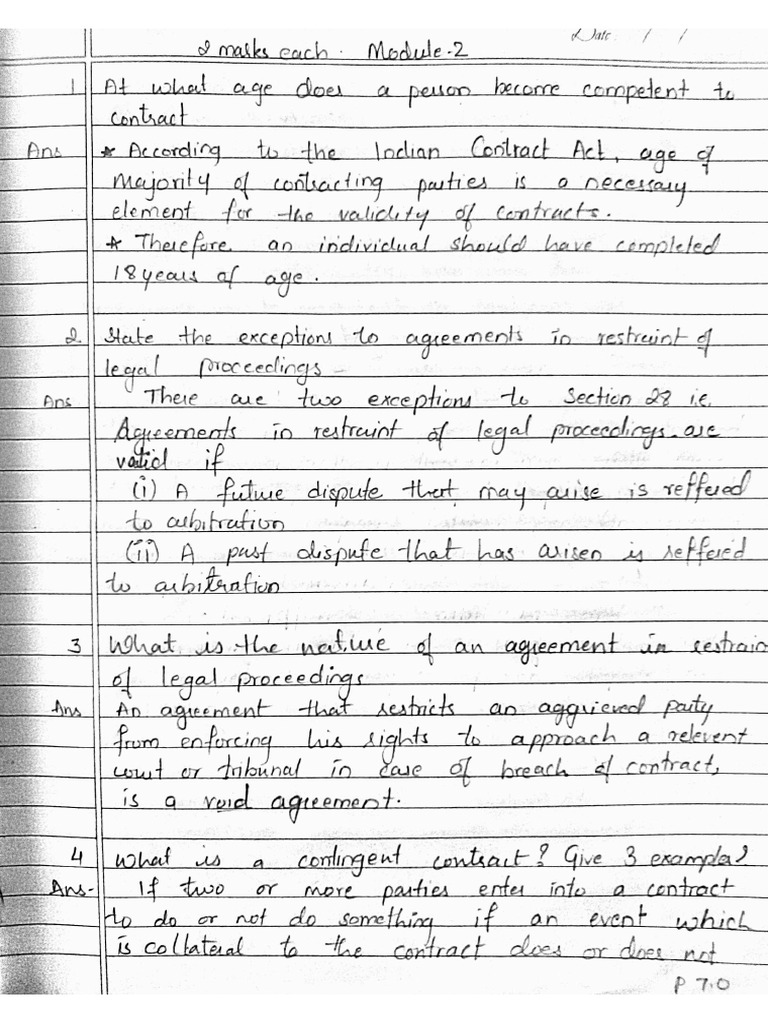 Date / /
2 marks each. Module-2
1 At what age does a person become competent to
contract
Ans * According to the Indian Contract Act, age of
majority of contracting parties is a necessary
element for the validity of contracts.
* Therefore an individual should have completed
18 years of age.
2. State the exceptions to agreements in restraint of
legal proceedings -
Ans There are two exceptions to Section 28 i.e.
Agreements in restraint of legal proceedings are
valid if
(i) A future dispute that may arise is reffered
to arbitration
(ii) A past dispute that has arisen is reffered
to arbitration
3 What is the nature of an agreement in restrain
of legal proceedings
Ans An agreement that restricts an aggrieved party
from enforcing his rights to approach a relevent
court or tribunal in case of breach of contract,
is a void agreement.
4 What is a contingent contract? Give 3 examples
Ans- If two or more parties enter into a contract
to do or not do something if an event which
is collateral to the contract does or does not
P T.O